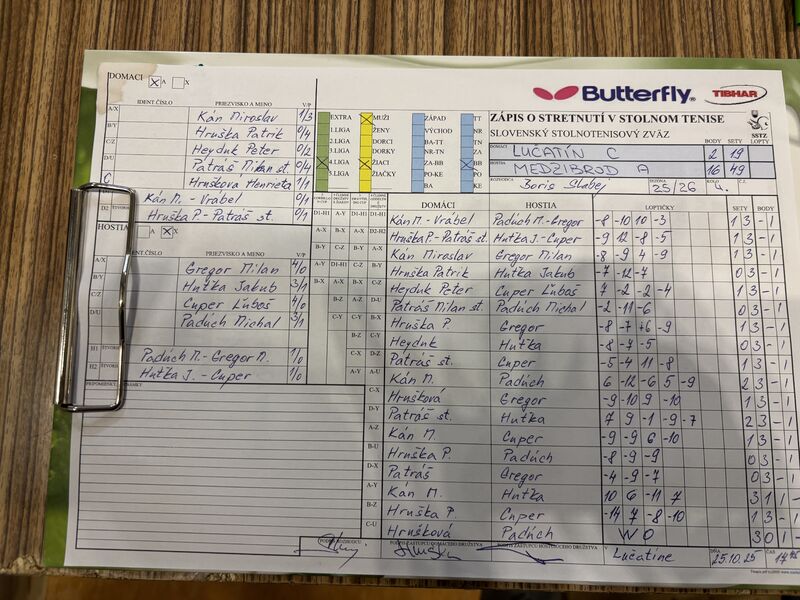 DOMACI A X
IDENT ČÍSLO PRIEZVISKO A MENO V/P
A/X Kán Miroslav 1/3
B/Y Hruška Patrik 0/4
Heyduk Peter 0/2
D/U Patráš Milan st. 0/4
C Hrušková Henrieta 1/1
Kán M. - Vrábel 0/1
D2 Hruška P. - Patráš st. 0/1
HOSTIA A X
IDENT ČÍSLO PRIEZVISKO A MENO V/P
A/X Gregor Milan 4/0
B/Y Huťka Jakub 3/1
C/Z Cuper Ľuboš 4/0
D/U Padúch Michal 3/1
H1 Padúch M. - Gregor M. 1/0
H2 Huťka J. - Cuper 1/0
Butterfly TIBHAR
EXTRA MUŽI ZÁPAD TT
1.LIGA ŽENY VÝCHOD NR
2.LIGA DORCI BA-TT TN
3.LIGA DORKY NR-TN ZA
4.LIGA ŽIACI ZA-BB BB
5.LIGA ŽIAČKY PO-KE PO
BA KE
ZÁPIS O STRETNUTÍ V STOLNOM TENISE
SLOVENSKÝ STOLNOTENISOVÝ ZVÄZ SSTZ
BODY SETY LOPTY
DOMÁCI LUČATÍN C 2 19
HOSTIA MEDZIBROD A 16 49
ROZHODCA Boris Slabej SEZÓNA 25/26 KOLO 4. Č.Z.
DOMÁCI HOSTIA LOPTIČKY SETY BODY
Kán M. - Vrábel Padúch M.-Gregor -8 -10 10 -3 1 3 - 1
Hruška P. - Patráš st. Huťka J. - Cuper -9 12 -8 -5 1 3 - 1
Kán Miroslav Gregor Milan -8 -9 4 -9 1 3 - 1
Hruška Patrik Huťka Jakub -7 -12 -7 0 3 - 1
Heyduk Peter Cuper Ľuboš 7 -2 -2 -4 1 3 - 1
Patráš Milan st. Padúch Michal -2 -11 -6 0 3 - 1
Hruška P. Gregor -8 -7 +6 -9 1 3 - 1
Heyduk Huťka -8 -7 -5 0 3 - 1
Patráš st. Cuper -5 -4 11 -8 1 3 - 1
Kán M. Padúch 6 -12 -6 5 -9 2 3 - 1
C-X Hrušková Gregor -9 -10 9 -10 1 3 - 1
D-Y Patráš st. Huťka 7 9 -1 -9 -7 2 3 - 1
A-Z Kán M. Cuper -9 -9 6 -10 1 3 - 1
B-U Hruška P. Padúch -8 -9 -9 0 3 - 1
D-X Patráš Gregor -4 -9 -7 0 3 - 1
A-Y Kán M. Huťka 10 6 -11 7 3 1 1 -
B-Z Hruška P Cuper -14 7 -8 -10 1 3 - 1
C-U Hrušková Padúch W O 3 0 1 -
PODPIS ROZHODCU PODPIS ZÁSTUPCU DOMÁCEHO DRUŽSTVA PODPIS ZÁSTUPCU HOSŤUJÚCEHO DRUŽSTVA V Lučatíne DŇA 25.10.25 ČAS